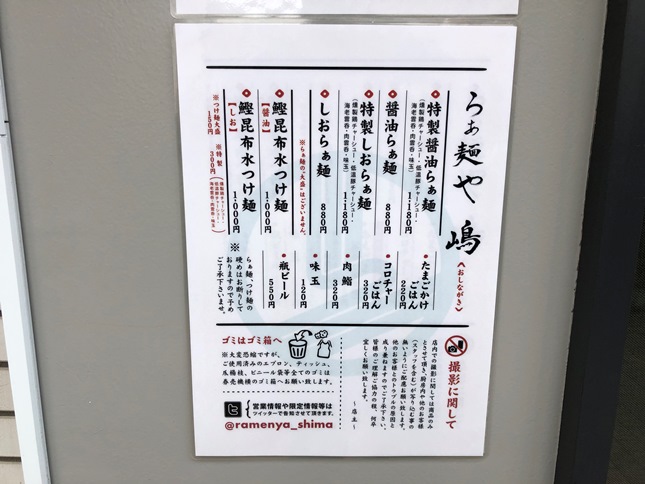 らぁ麺や 嶋
〈おしながき〉
特製醤油らぁ麺 1.180円
(燻製鶏チャーシュー・低温豚チャーシュー・
海老雲呑・肉雲呑・味玉)
醤油らぁ麺 880円
特製しおらぁ麺 1.180円
(燻製鶏チャーシュー・低温豚チャーシュー・
海老雲呑・肉雲呑・味玉)
しおらぁ麺 880円
※らぁ麺の“大盛”はございません。
鰹昆布水つけ麺 1.000円
【醤油】
鰹昆布水つけ麺 1.000円
【しお】
※つけ麺大盛
150円
※特製
300円
(燻製鶏チャーシュー・
低温豚チャーシュー・
海老雲呑・肉雲呑・味玉)
たまごかけ
ごはん 220円
コロチャー
ごはん 320円
肉鮨 320円
味玉 120円
瓶ビール 550円
※らぁ麺、つけ麺の
硬めはお断りして
おりますので予め
ご了承下さいませ。
撮影に関して
店内での撮影に関しては商品のみ
とさせて頂き、厨房内や他のお客様
(スタッフを含む)が写り込む事の
無いようにご配慮お願い致します。
他のお客様とのトラブルの原因と
成り兼ねますのでご了承下さい。
皆様のご理解ご協力の程、何卒
宜しくお願い致します。
〜店主〜
ゴミはゴミ箱へ
※大変恐縮ですが、
ご使用済みのエプロン、ティッシュ、
爪楊枝、ビニール袋等全てのゴミは
券売機横のゴミ箱へお願い致します。
営業情報や限定情報等は
ツイッターで告知させて頂きます。
@ramenya_shima